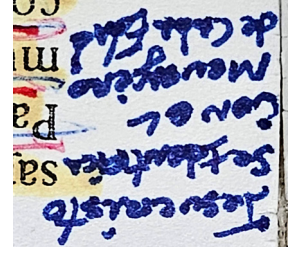 Jesucristo
Se Identifica
Con el
Mensajero
de Cada
Pa
mu
co